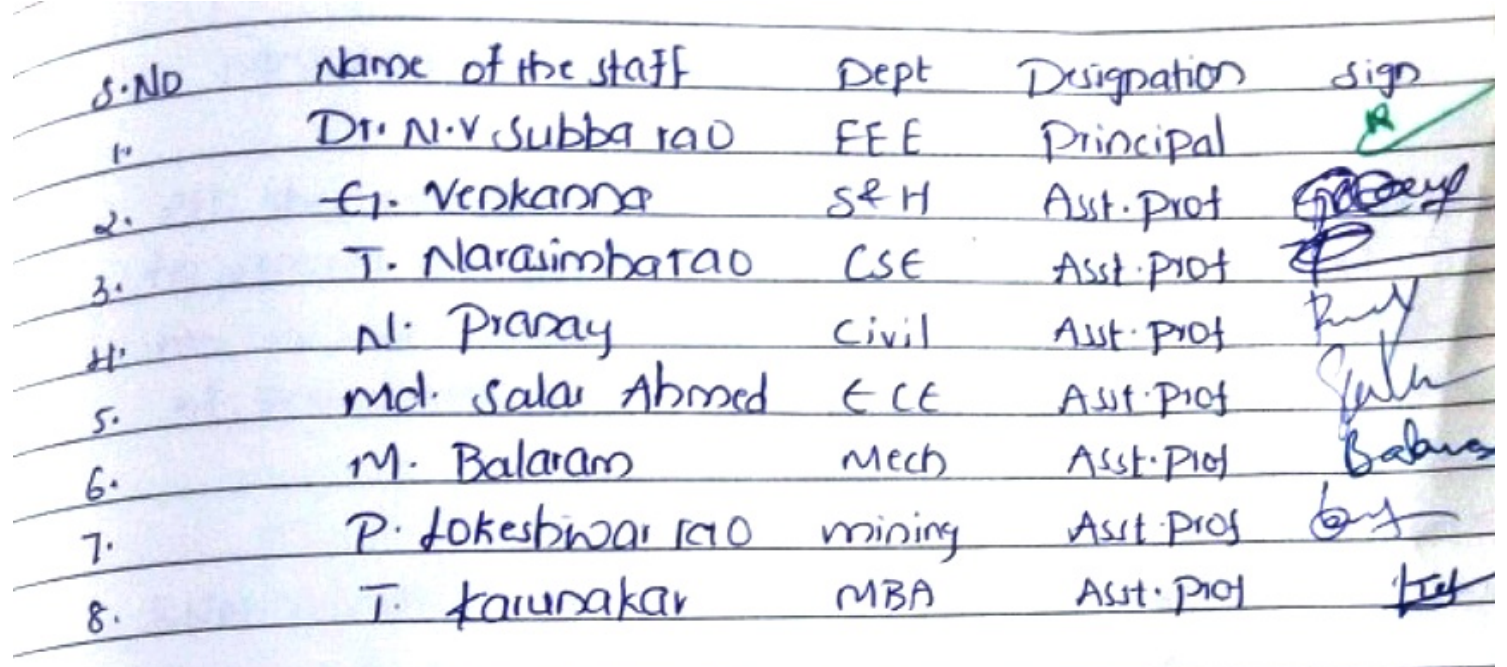 S.No Name of the staff Dept Designation Sign
1. Dr. N.V Subba rao EEE Principal
2. G. Venkanna S&H Asst. Prof
3. T. Narasimharao CSE Asst. Prof
4. N. Pranay Civil Asst. Prof
5. Md. Salar Ahmed ECE Asst. Prof
6. M. Balaram Mech Asst. Prof
7. P. Lokeshwar rao mining Asst. Prof
8. T. Karunakar MBA Asst. Prof